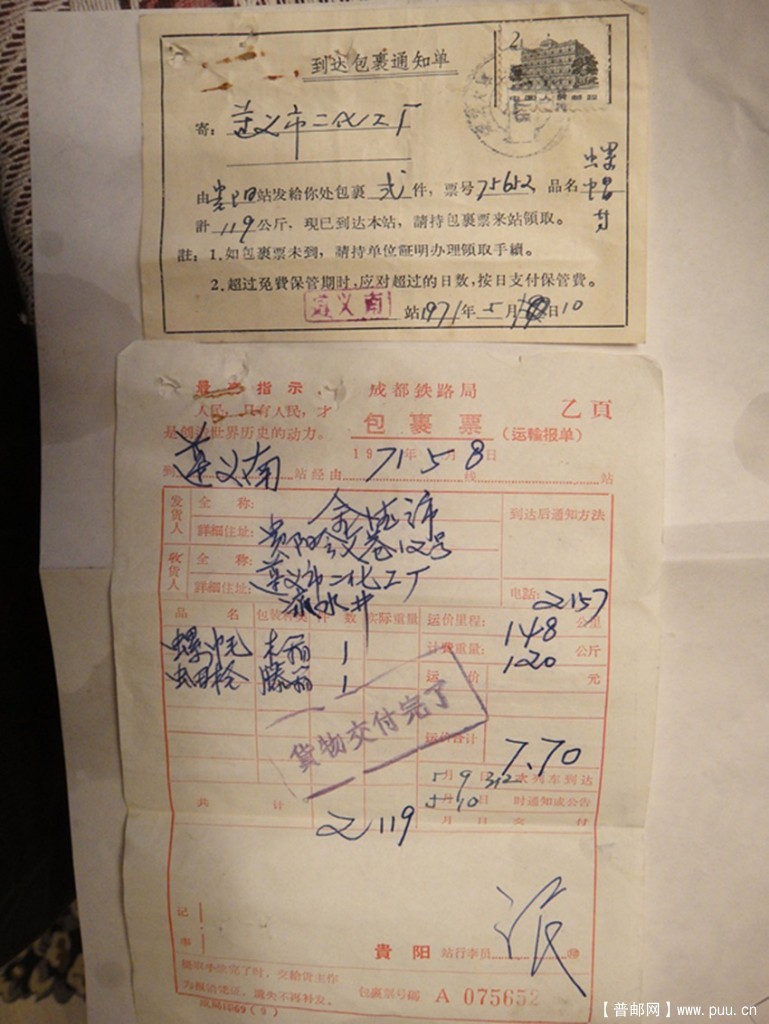 到达包裹通知单
2
中国人民邮政
寄：遵义市二化工厂
由贵阳站发给你处包裹 弍 件，票号75652 品名 螺
計 119 公斤，现已到达本站，請持包裹票来站领取。
註：1.如包裹票未到，請持单位証明办理领取手續。
2.超过免費保管期时，应对超过的日数，按日支付保管费。
遵义南 站1971年 5 月 日10
最高指示
人民，只有人民，才
是创造世界历史的动力。
成都鉄路局
包裹票
乙頁
（运輸报单）
19 年 月 日
71 5 8
到 遵义南 站經由 线 站
发货人
全称：
到达后通知方法
詳細住址：贵阳 巷12号
收货人
全称：遵义市二化工厂
詳細住址： 水井
电話：2157
品名 包装种类 件数 实际重量 运价里程：148 公里
螺帽 木箱 1
计费重量：120 公斤
螺栓 藤箱 1
运价 元
貨物交付完了
运价合计 7.70
5月9日 312次列车到达
5月10日 时通知或公告
月 日 交付
共計 2 119
記事
貴阳 站行李员
領取手续完了时，交給货主作
为报销凭证，遗失不再补发。
包裹票号碼 A 075652
【普邮网】www.puu.cn